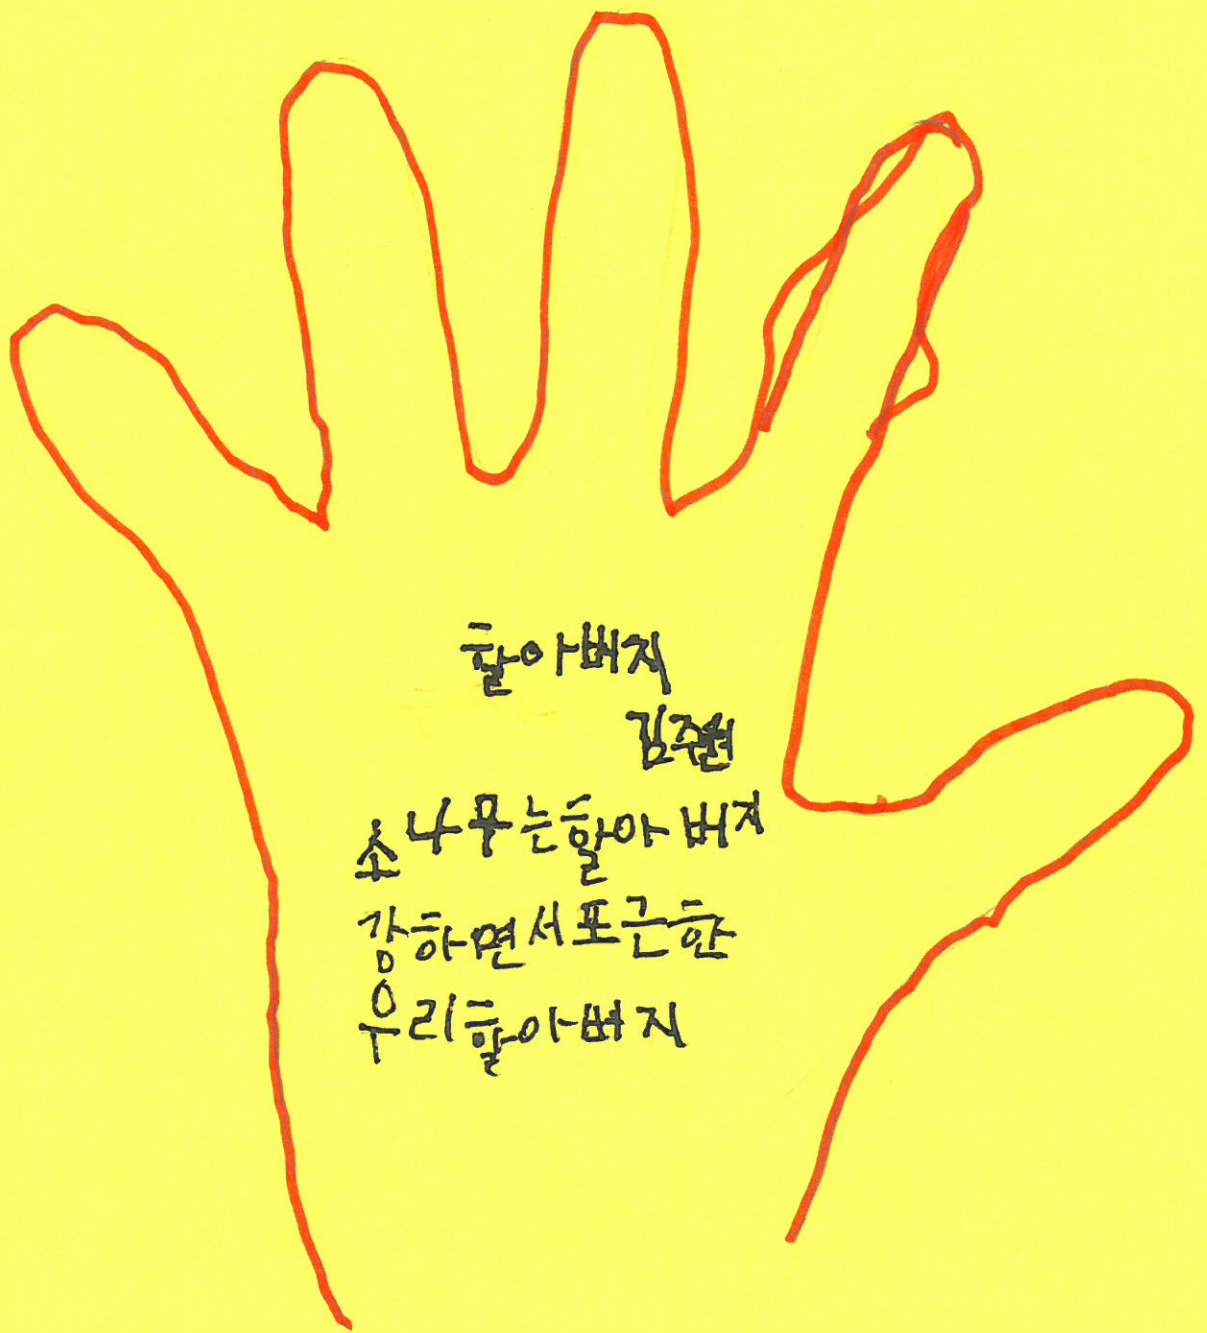 할아버지
김주원
소나무는할아버지
강하면서포근한
우리할아버지